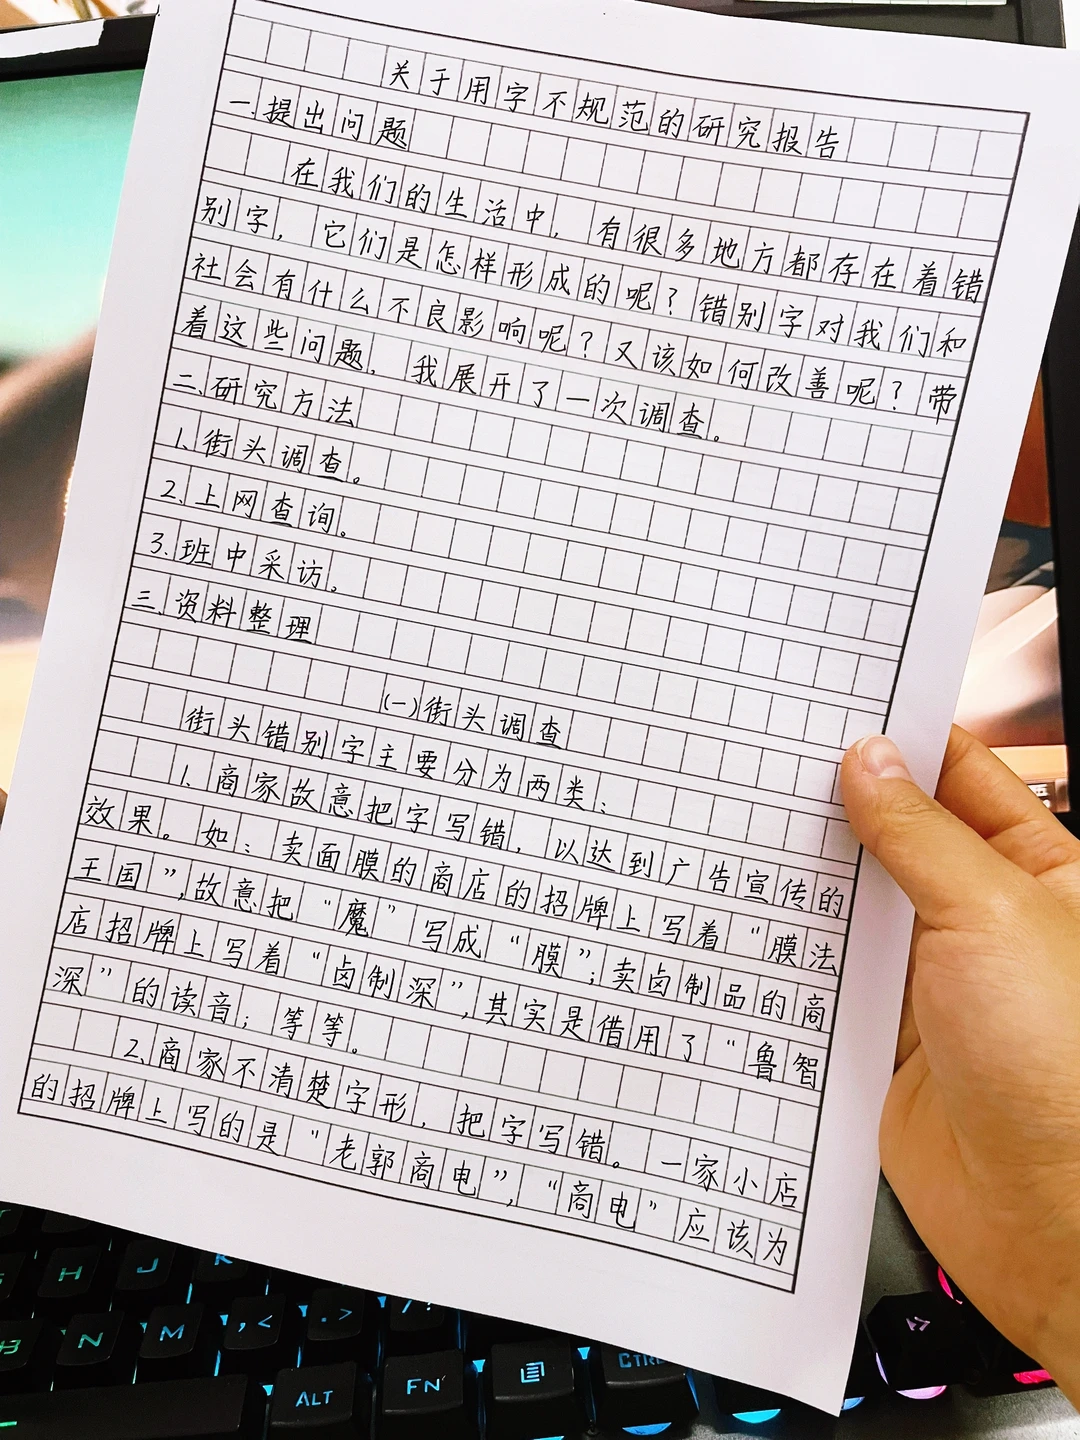 关于用字不规范的研究报告
一.提出问题
在我们的生活中,有很多地方都存在着错
别字,它们是怎样形成的呢?错别字对我们和
社会有什么不良影响呢?又该如何改善呢?带
着这些问题,我展开了一次调查。
二.研究方法
1.街头调查。
2.上网查询。
3.班中采访。
三.资料整理
(一)街头调查
街头错别字主要分为两类:
1.商家故意把字写错,以达到广告宣传的
效果。如:卖面膜的商店的招牌上写着“膜法
王国”,故意把“魔”写成“膜”;卖卤制品的商
店招牌上写着“卤制深”,其实是借用了“鲁智
深”的读音;等等。
2.商家不清楚字形,把字写错。一家小店
的招牌上写的是“老郭商电”,“商电”应该为
H
J
N
M
,<
.>
/?
ALT
FN
CTRL